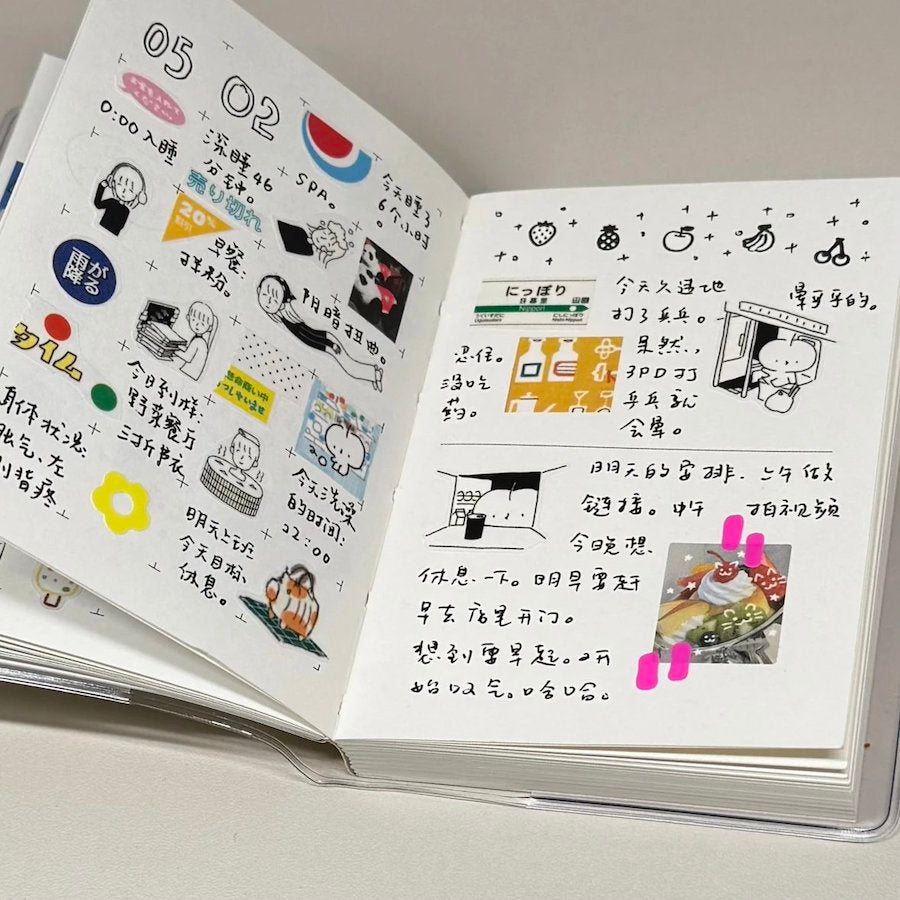 05
02
0:00入睡
深睡46
分钟。
SPA。
今天睡了
6个小时
。
売り切れ
20%
早餐:
拌粉。
阴暗扭曲。
雨が
降る
タイム
今日到件:
野菜餐厅
身体状况:
胀气、左
侧背疼
今天洗澡
的时间:
22:00
明天上班
今天目标:
休息。
にっぽり
日暮里
山
Nippori
うぐいすだに
Uguisudani
にしにっぽり
Nishi-Nippori
今天久违地
打了乒乓。
果然,
3PD打
乒乓就
会晕。
晕乎乎的。
忍住。
没吃
药。
明天的安排、上午做
链接。中午 拍视频
今晚想
休息一下。明早要赶
早去店里开门。
想到要早起。又开
始叹气。哈哈。